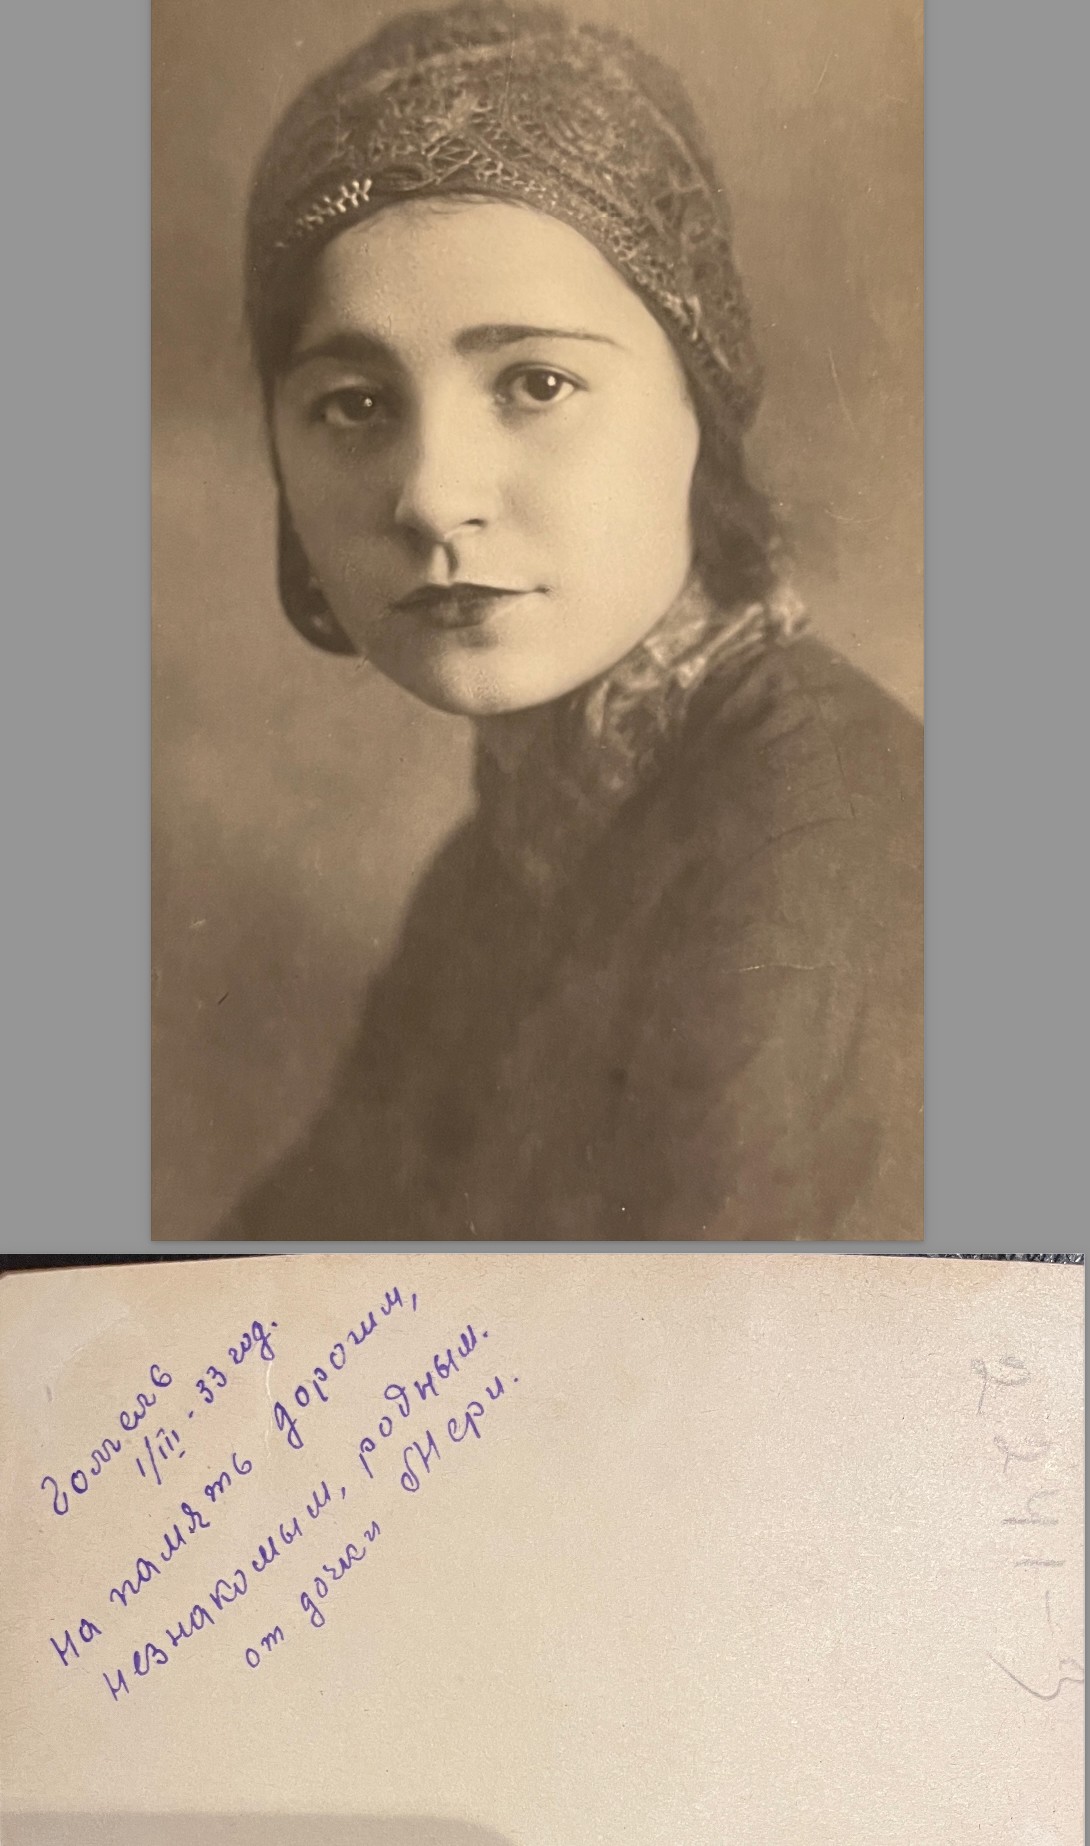 Гомель
1/III - 33 год.
На память дорогим,
незнакомым, родным.
от дочки Мери.